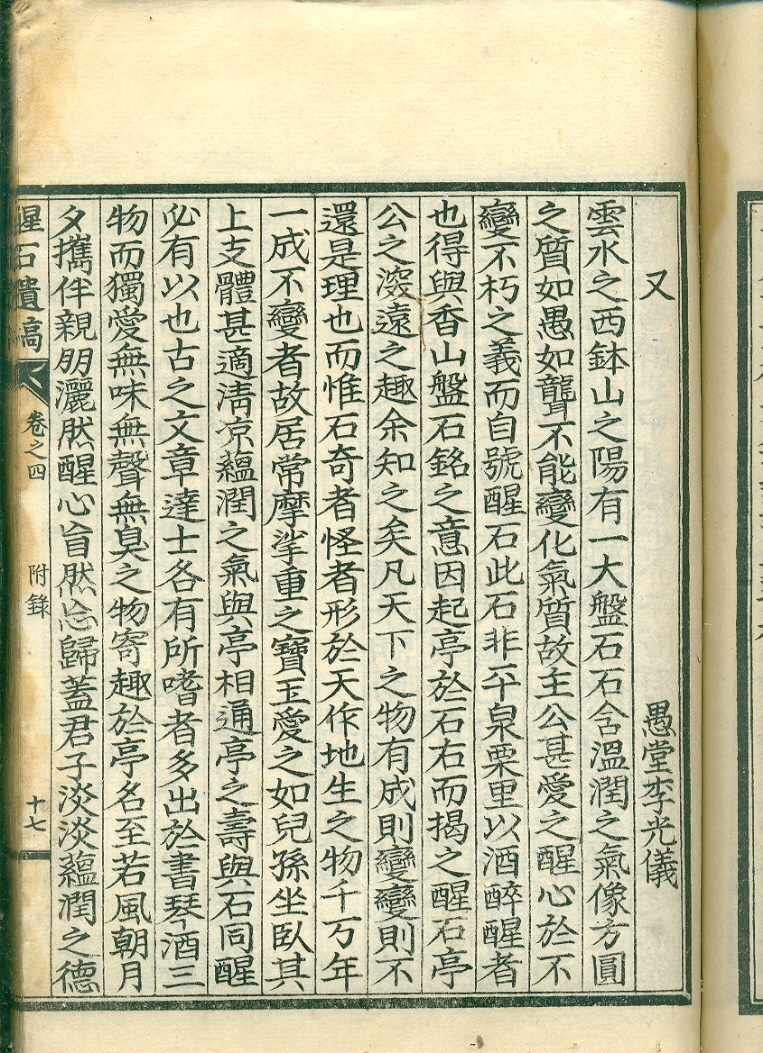 又 愚堂李光儀
雲水之西鉢山之陽有一大盤石石含溫潤之氣像方圓
之質如愚如聾不能變化氣質故主公甚愛之醒心於不
變不朽之義而自號醒石此石非平泉栗里以酒醉醒者
也得與香山盤石銘之意因起亭於石右而揭之醒石亭
公之深遠之趣余知之矣凡天下之物有成則變變則不
還是理也而惟石奇者怪者形於天作地生之物千万年
一成不變者故居常摩挲重之寶玉愛之如兒孫坐臥其
上支體甚適淸凉蘊潤之氣與亭相通亭之壽與石同醒
必有以也古之文章達士各有所嗜者多出於書琴酒三
物而獨愛無味無聲無臭之物寄趣於亭名至若風朝月
夕攜伴親朋灑然醒心窅然忘歸蓋君子淡淡蘊潤之德
醒石遺稿 卷之四 附錄 十七